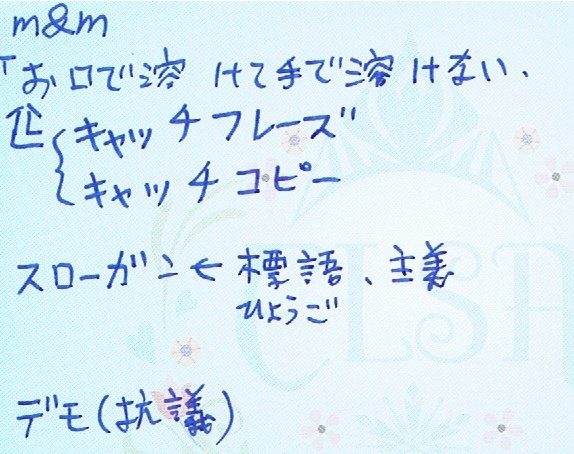 m&m
「お口で溶けて手で溶けない、
⇧{キャッチフレーズ
キャッチコピー
スローガン←標語、主義
ひょうご
デモ(抗議)
ELSA